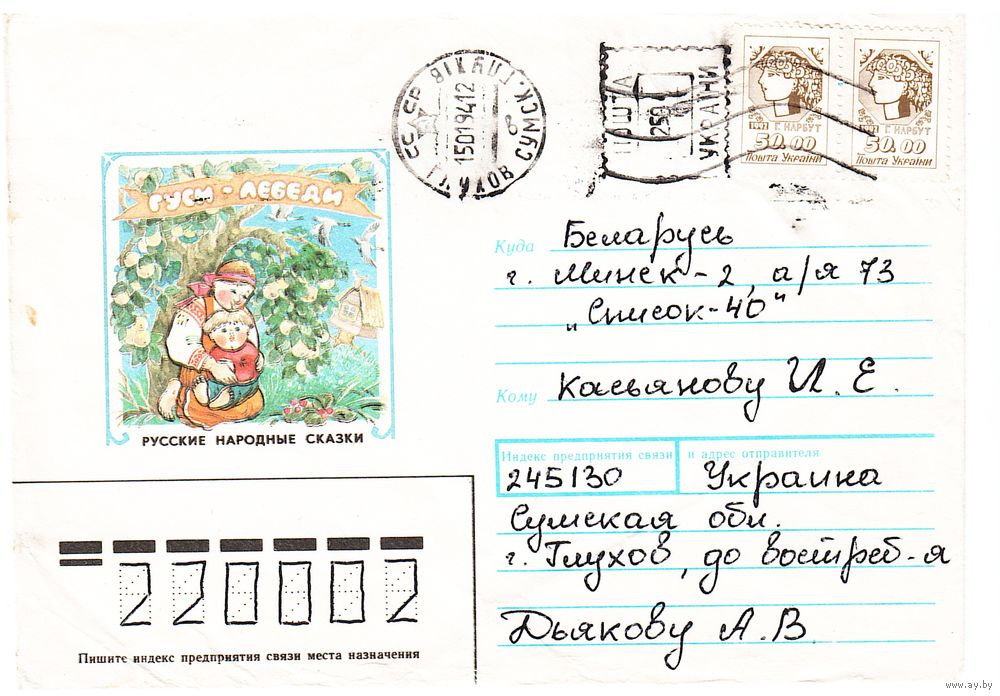 15019412
ГЛУХОВ СУМСК.
ПОШТА
УКРАЇНИ
1992 Г. НАРБУТ
50.00
ПОШТА УКРАЇНИ
1992 Г. НАРБУТ
50.00
ПОШТА УКРАЇНИ
ГУСИ - ЛЕБЕДИ
РУССКИЕ НАРОДНЫЕ СКАЗКИ
Куда Беларусь
г. Минск-2, а/я 73
„Список-40"
Кому Касьянову И. Е.
Индекс предприятия связи и адрес отправителя
245130 Украина
Сумская обл.
г. Глухов, до востреб-я
Дьякову А. В.
220002
Пишите индекс предприятия связи места назначения
www.ay.by